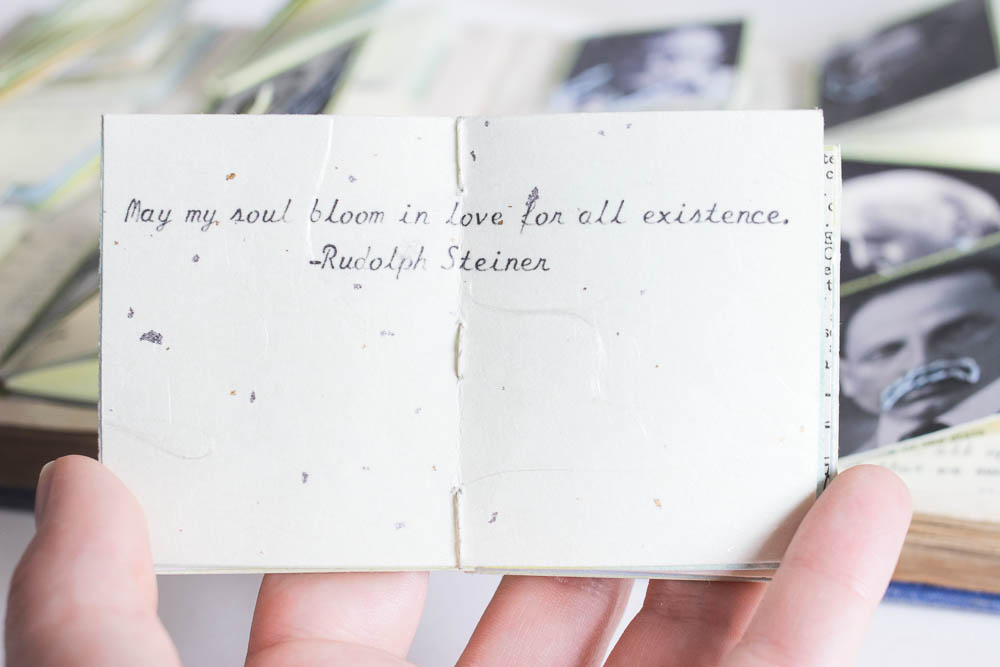 May my soul bloom in love for all existence.
-Rudolph Steiner